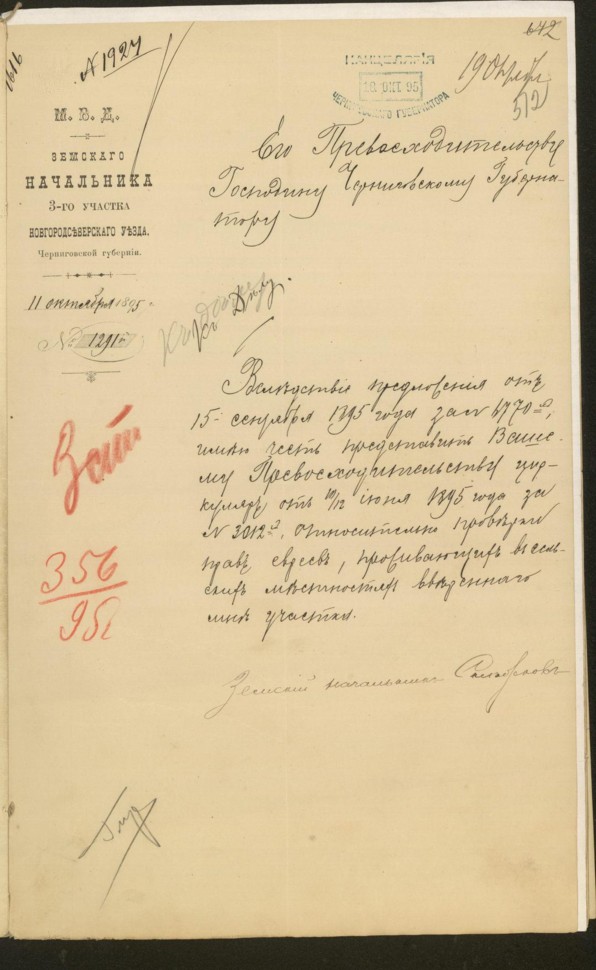 642
1616
N 1927
КАНЦЕЛЯРІЯ
18 ОКТ 95
ЧЕРНИГОВСКАГО ГУБЕРНАТОРА
19
512
М. В. Д.
ЗЕМСКАГО
НАЧАЛЬНИКА
3-ГО УЧАСТКА
НОВГОРОДСѢВЕРСКАГО УѢЗДА.
Черниговской губерніи.
11 октября 1895 г.
№ 1291
Его Превосходительству
Господину Черниговскому Губерна-
тору
Къ дѣлу.
Вслѣдствіе предложенія отъ
15 сентября 1895 года за N 4770,
имѣю честь представить Ваше-
му Превосходительству цир-
куляръ отъ 10/12 іюня 1895 года за
N 2012, относительно провѣрки
правъ евреевъ, проживающихъ въ сель-
скихъ мѣстностяхъ ввѣреннаго
мнѣ участка.
Земскій начальникъ
356
95